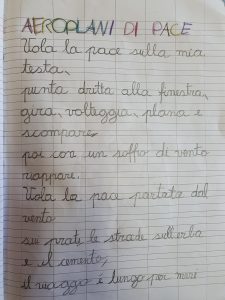 AEROPLANI DI PACE
Vola la pace sulla mia
testa,
punta dritta alla finestra,
gira, volteggia, plana e
scompare,
poi con un soffio di vento
riappare.
Vola la pace portata dal
vento
sui prati le strade sull'erba
e il cemento,
il viaggio é lungo per mari